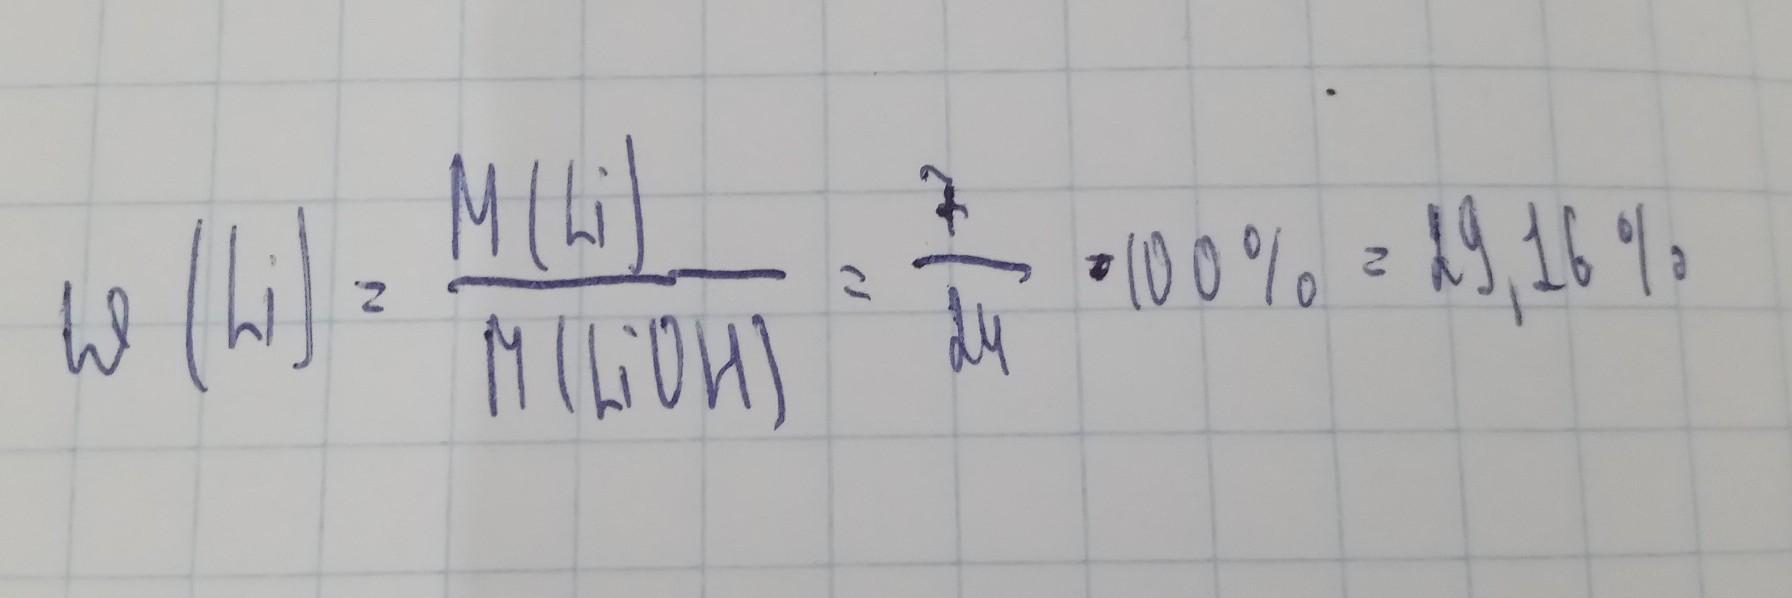 ω (Li) = M(Li) / M(LiOH) = 7 / 24 · 100% = 29,16%